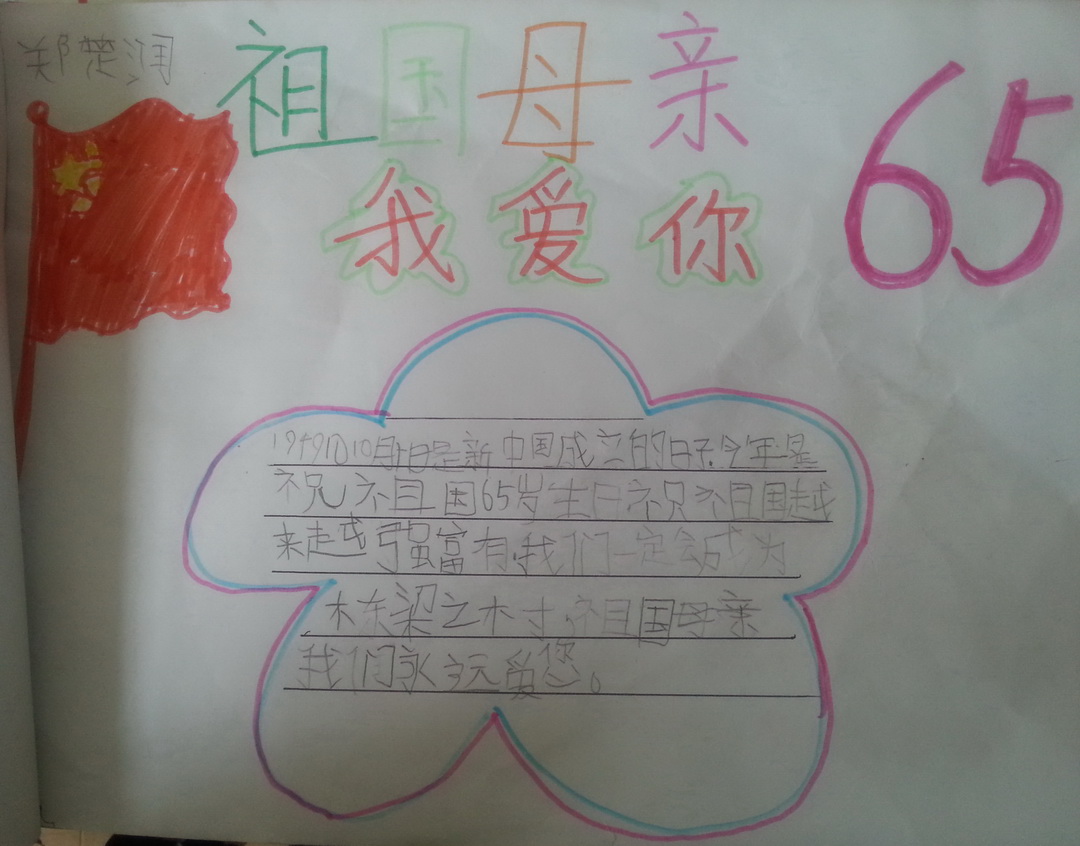 郑楚润
祖国母亲
65
我爱你
10月1日是新中国成立的日子.今年是
祝祖国65岁生日祝祖国越
来越强富有.我们一定会成为
栋梁之木寸.祖国母亲
我们永远爱您。